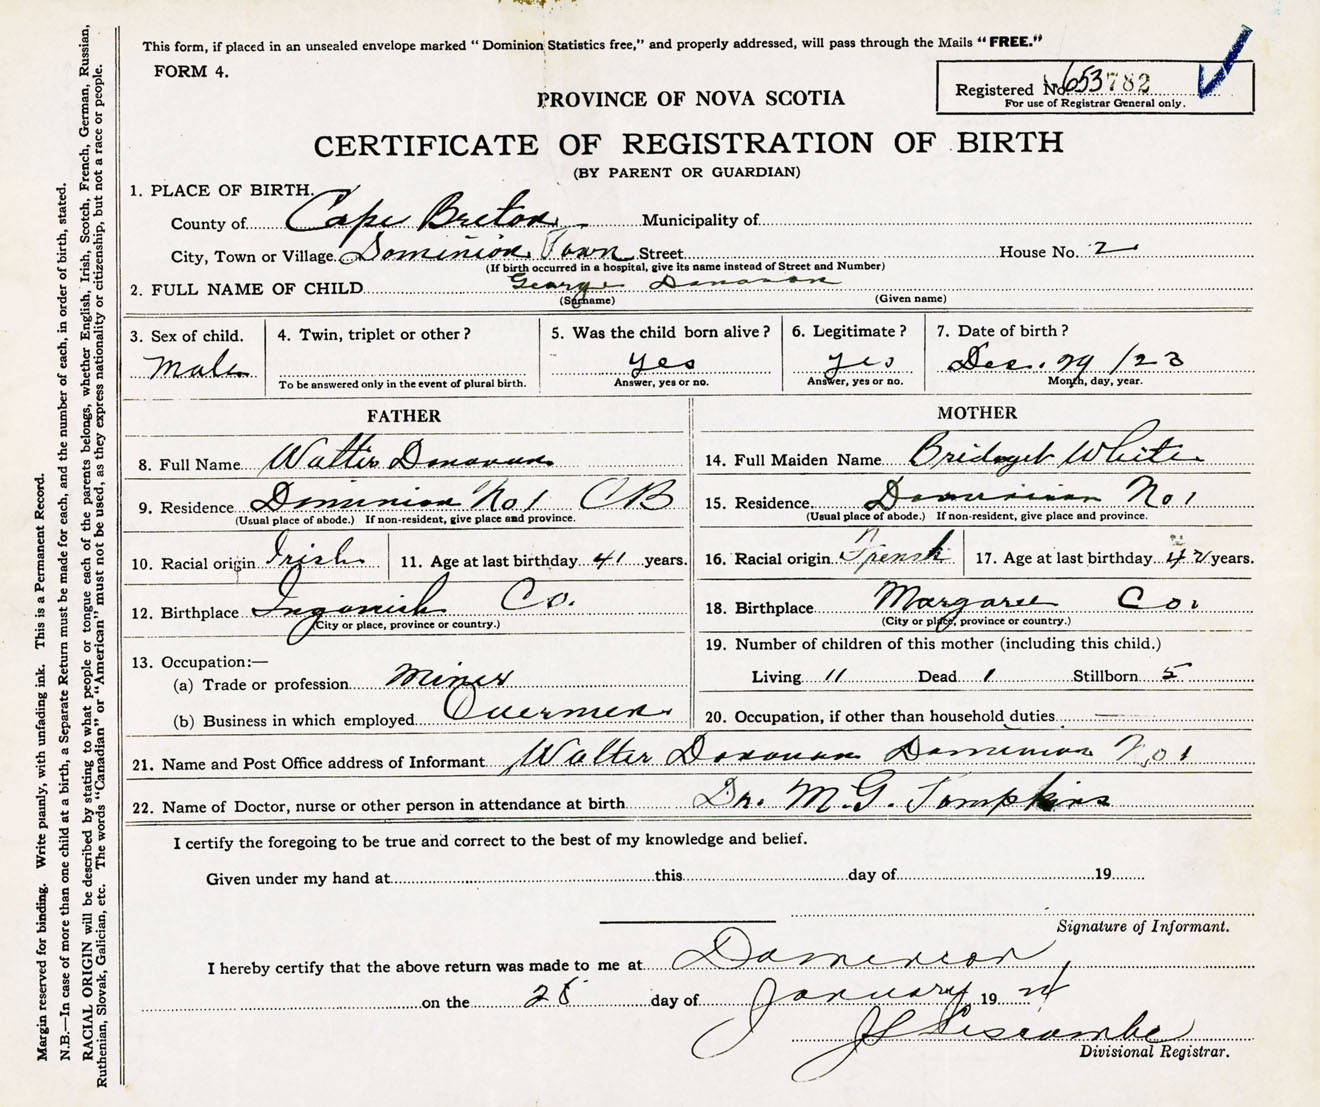 This form, if placed in an unsealed envelope marked " Dominion Statistics free," and properly addressed, will pass through the Mails "FREE."
FORM 4.
Registered No. 653782
For use of Registrar General only.
PROVINCE OF NOVA SCOTIA
CERTIFICATE OF REGISTRATION OF BIRTH
(BY PARENT OR GUARDIAN)
1. PLACE OF BIRTH.
County of Cape Breton Municipality of
City, Town or Village Dominion Town Street House No. 2
(If birth occurred in a hospital, give its name instead of Street and Number)
2. FULL NAME OF CHILD George Donovan
(Surname) (Given name)
3. Sex of child. 4. Twin, triplet or other? 5. Was the child born alive? 6. Legitimate? 7. Date of birth?
Male yes yes Dec. 29 /23
To be answered only in the event of plural birth. Answer, yes or no. Answer, yes or no. Month, day, year.
FATHER MOTHER
8. Full Name Walter Donovan
9. Residence Dominion No 1 CB
(Usual place of abode.) If non-resident, give place and province.
10. Racial origin Irish 11. Age at last birthday 41 years.
12. Birthplace Ingonish Co.
(City or place, province or country.)
13. Occupation:—
(a) Trade or profession Miner
(b) Business in which employed Overman
14. Full Maiden Name Bridget White
15. Residence Dominion No 1
(Usual place of abode.) If non-resident, give place and province.
16. Racial origin French 17. Age at last birthday 42 years.
18. Birthplace Margaree Co.
(City or place, province or country.)
19. Number of children of this mother (including this child.)
Living 11 Dead 1 Stillborn 5
20. Occupation, if other than household duties
21. Name and Post Office address of Informant Walter Donovan Dominion No 1
22. Name of Doctor, nurse or other person in attendance at birth Dr. M.G. Tompkins
I certify the foregoing to be true and correct to the best of my knowledge and belief.
Given under my hand at this day of 19
Signature of Informant.
I hereby certify that the above return was made to me at Dominion
on the 28 day of January 19 24
Liscombe
Divisional Registrar.
Margin reserved for binding. Write plainly, with unfading ink. This is a Permanent Record.
N.B.—In case of more than one child at a birth, a Separate Return must be made for each, and the number of each, in order of birth, stated.
RACIAL ORIGIN will be described by stating to what people or tongue each of the parents belongs, whether English, Irish, Scotch, French, German, Russian,
Ruthenian, Slovak, Galician, etc. The words "Canadian" or "American" must not be used, as they express nationality or citizenship, but not a race or people.